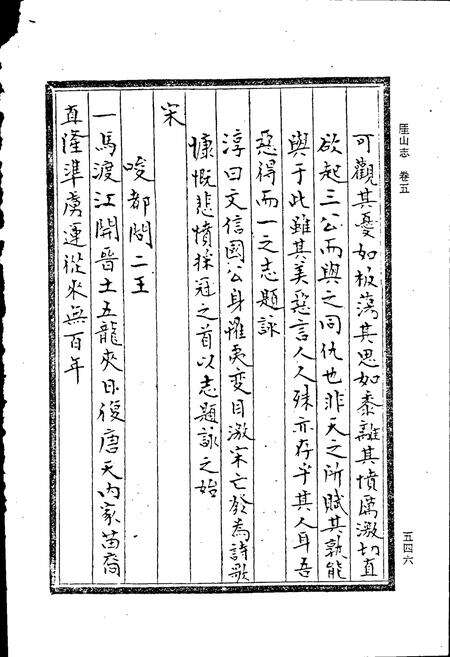 厓山志 卷五
五四六
可觀其憂如板蕩其思如黍離其憤厲激切直
欲起三公而與之同仇也非天之所賦其孰能
與于此雖其美惡言人人殊亦存乎其人耳吾
惡得而一之志題詠
淳曰文信國公身罹夷變目激宋亡發為詩歌
慷慨悲憤採冠之首以志題詠之始
宋
唆都問二王
一馬渡江開晉土五龍夾日復唐天內家苗裔
真隆準虜運從來無百年